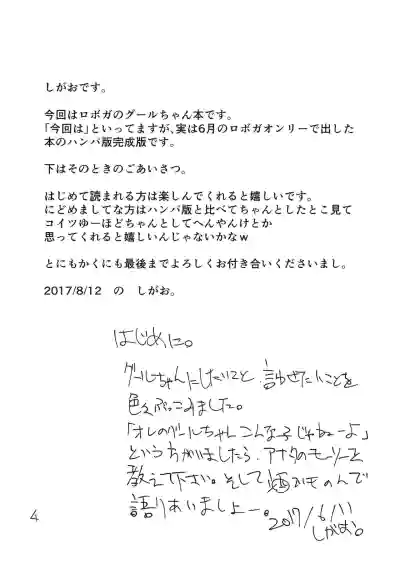 しがおです。
今回はロボガのグールちゃん本です。
「今回は」といってますが、実は6月のロボガオンリーで出した
本のハンパ版完成版です。
下はそのときのごあいさつ。
はじめて読まれる方は楽しんでくれると嬉しいです。
にどめましてな方はハンパ版と比べてちゃんとしたとこ見て
コイツゆーほどちゃんとしてへんやんけとか
思ってくれると嬉しいんじゃないかなw
とにもかくにも最後までよろしくお付き合いくださいまし。
2017/8/12 の しがお。
はじめに。
グールちゃんにしたいこと、言わせたいことを
色々ぶっこみました。
「オレのグールちゃんこんな子じゃねーよ」
という方がいましたら、アナタのモーリーを
教えて下さい。そして酒かものんで
語りあいましょー。
2017/6/11
しがお。
4